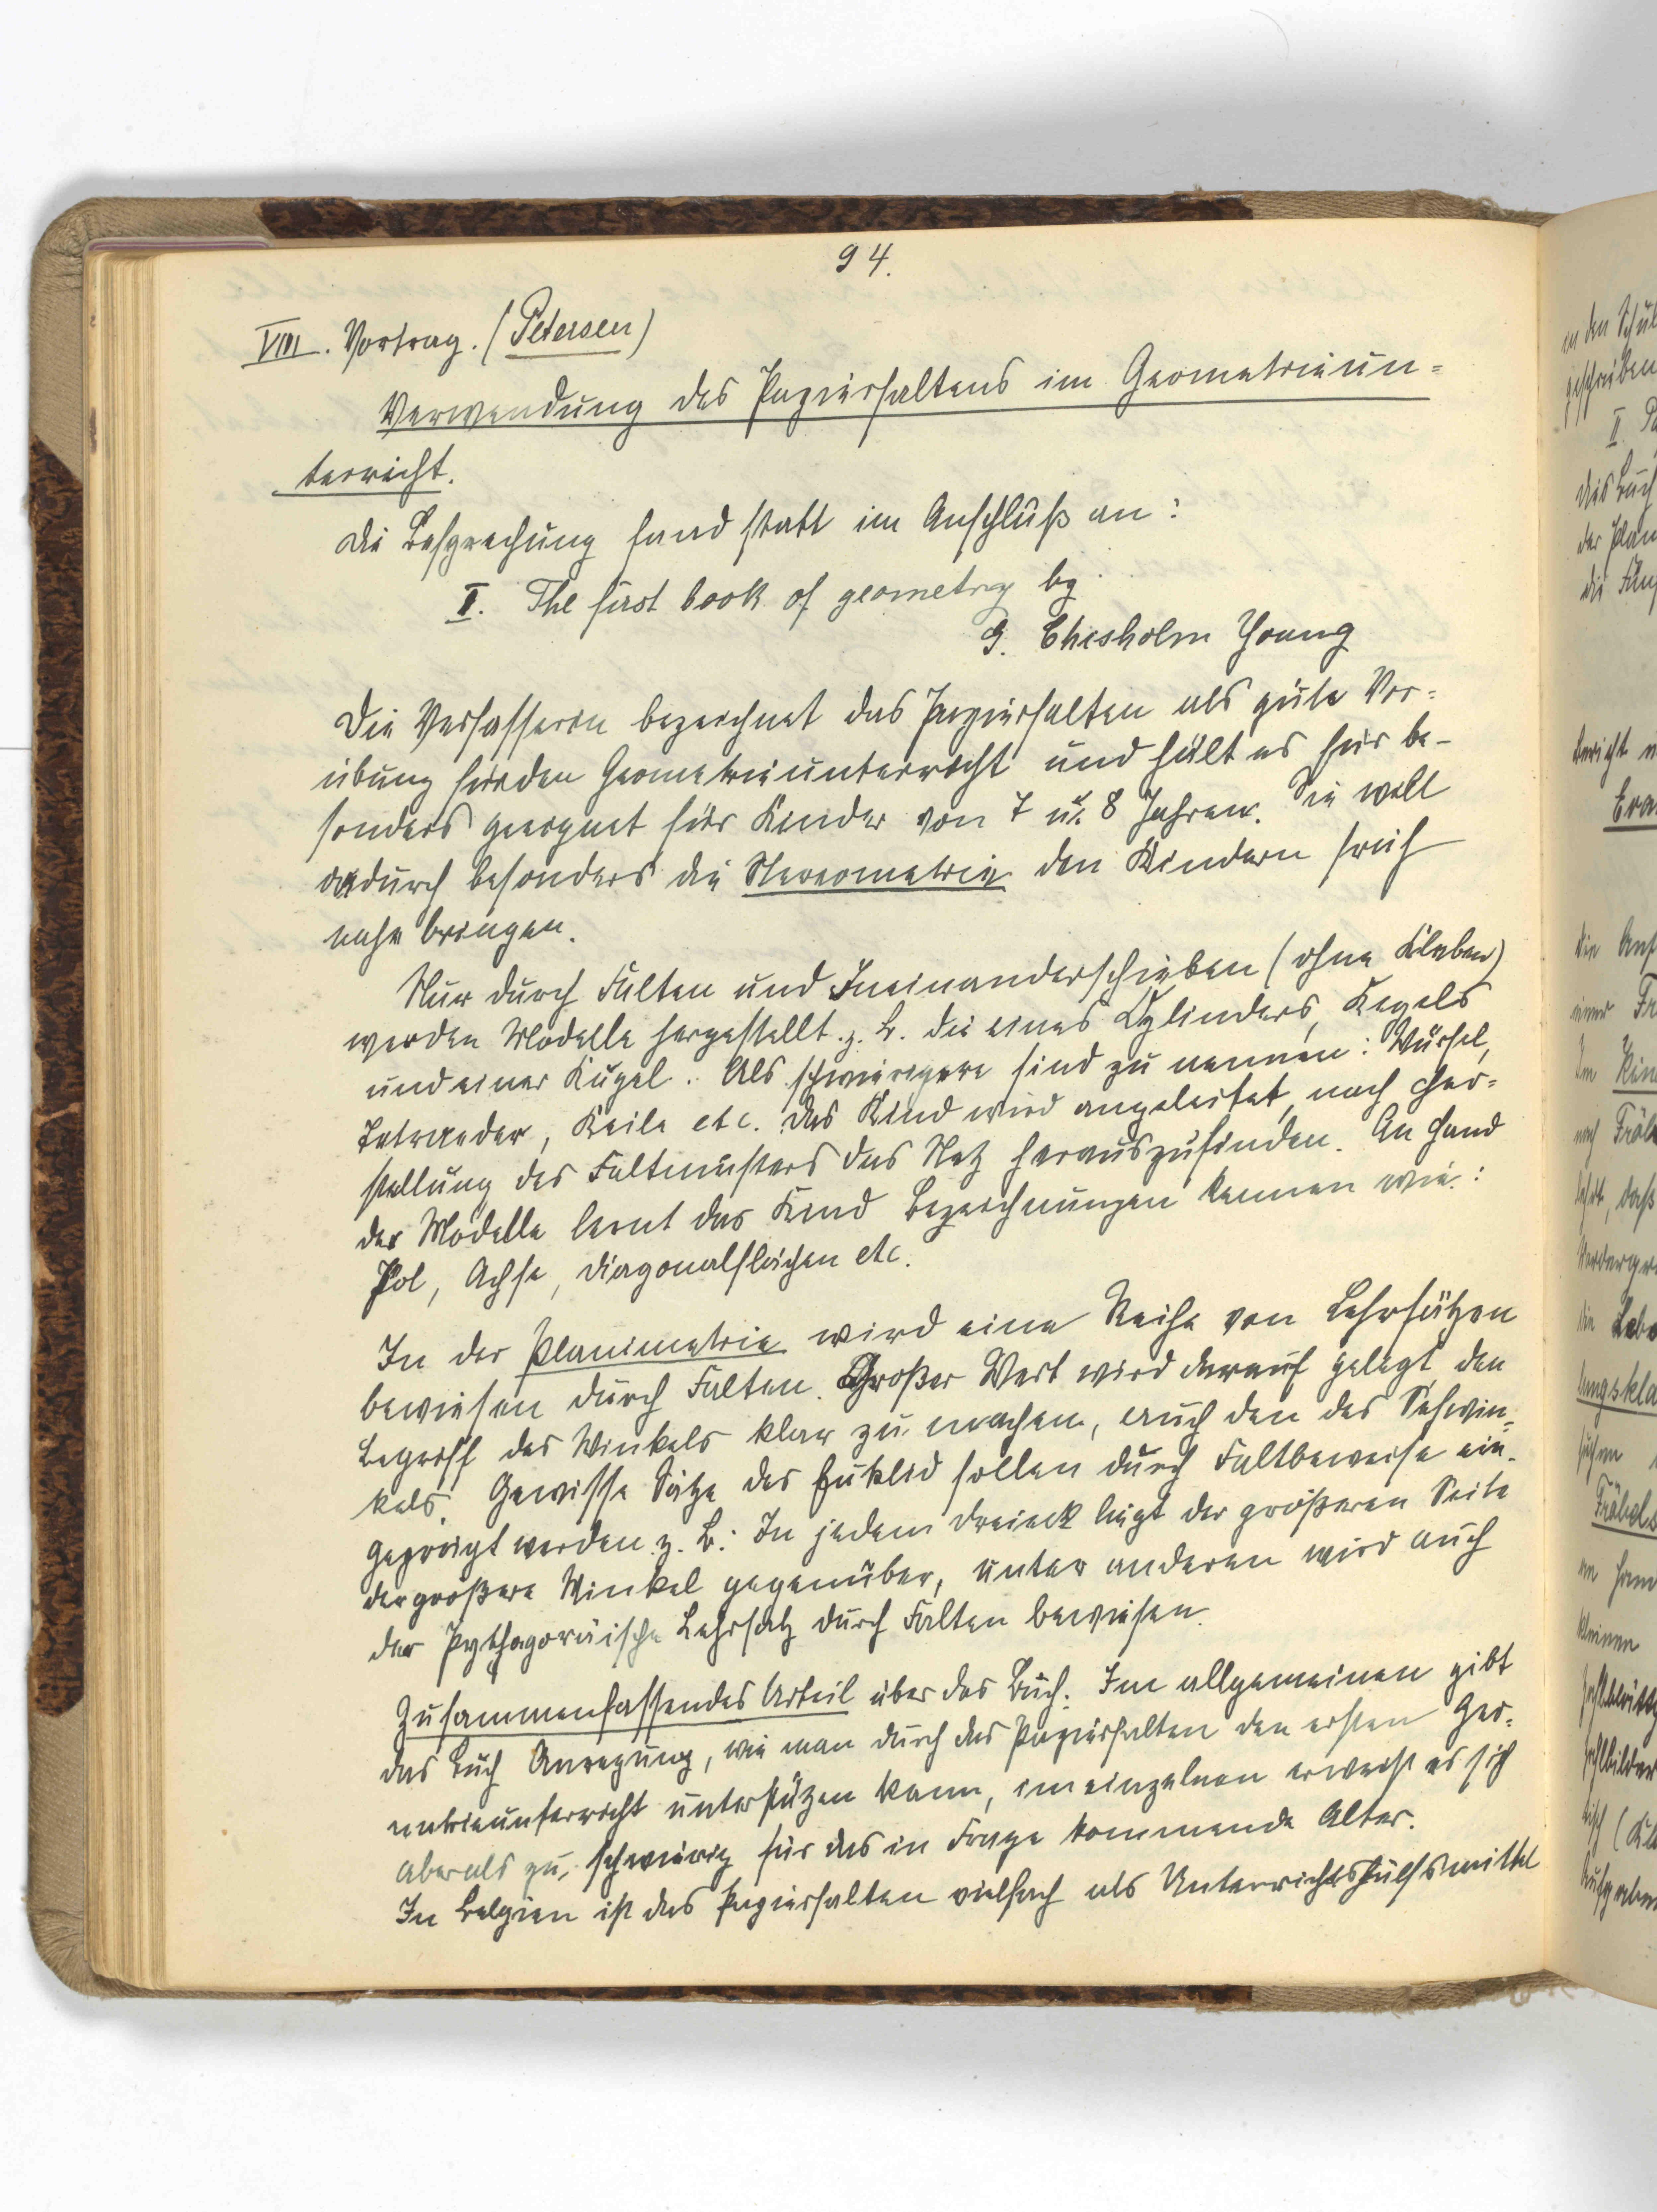 94.
VIII. Vortrag. (Petersen)
Verwendung des Papierfaltens im Geometrieun-
terricht.
Die Besprechung fand statt im Anschluß an:
I. The first book of geometry by
G. Chisholm Young
Die Verfasserin bezeichnet das Papierfalten als gute Vor-
übung für den Geometrieunterricht und hält es für be-
sonders geeignet für Kinder von 7 u. 8 Jahren. Sie will
dadurch besonders die Stereometrie den Kindern früh
nahe bringen.
Nur durch Falten und Ineinanderschieben (ohne Kleben)
werden Modelle hergestellt z. B. die eines Cylinders, Kegels
und einer Kugel. Als schwierigere sind zu nennen: Würfel,
Tetraeder, Keile etc. Das Kind wird angeleitet, nach Her-
stellung des Faltmusters das Netz herauszufinden. An Hand
der Modelle lernt das Kind Bezeichnungen kennen wie:
Pol, Achse, Diagonalflächen etc.
In der Planimetrie wird eine Reihe von Lehrsätzen
bewiesen durch Falten. Großer Wert wird darauf gelegt, den
Begriff des Winkels klar zu machen, auch den des Sehwin-
kels. Gewisse Sätze des Euklid sollen durch Faltbeweise ein-
geprägt werden z. B.: In jedem Dreieck liegt der größeren Seite
der größere Winkel gegenüber, unter anderen wird auch
der Pythagoräische Lehrsatz durch Falten bewiesen.
Zusammenfassendes Urteil über das Buch. Im allgemeinen gibt
das Buch Anregung, wie man durch das Papierfalten den ersten Geo-
metrieunterricht unterstützen kann, im einzelnen erweist es sich
aber als zu schwierig für das in Frage kommende Alter.
In Belgien ist das Papierfalten vielfach als Unterrichtshülfsmittel